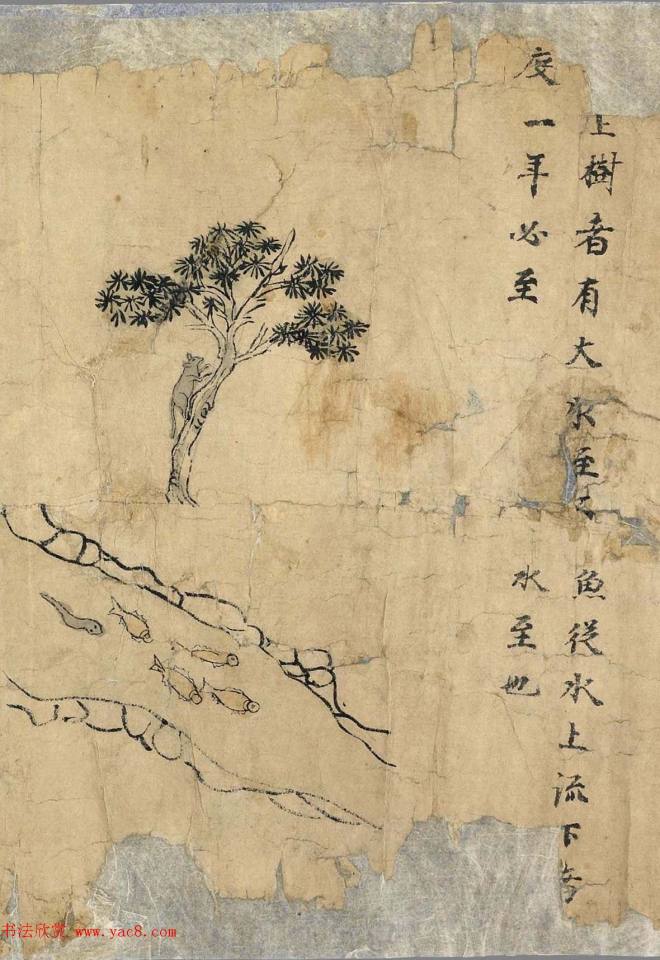 上樹者有大水至
度一年必至
魚從水上流下者
水至也
书法欣赏 www.yac8.com